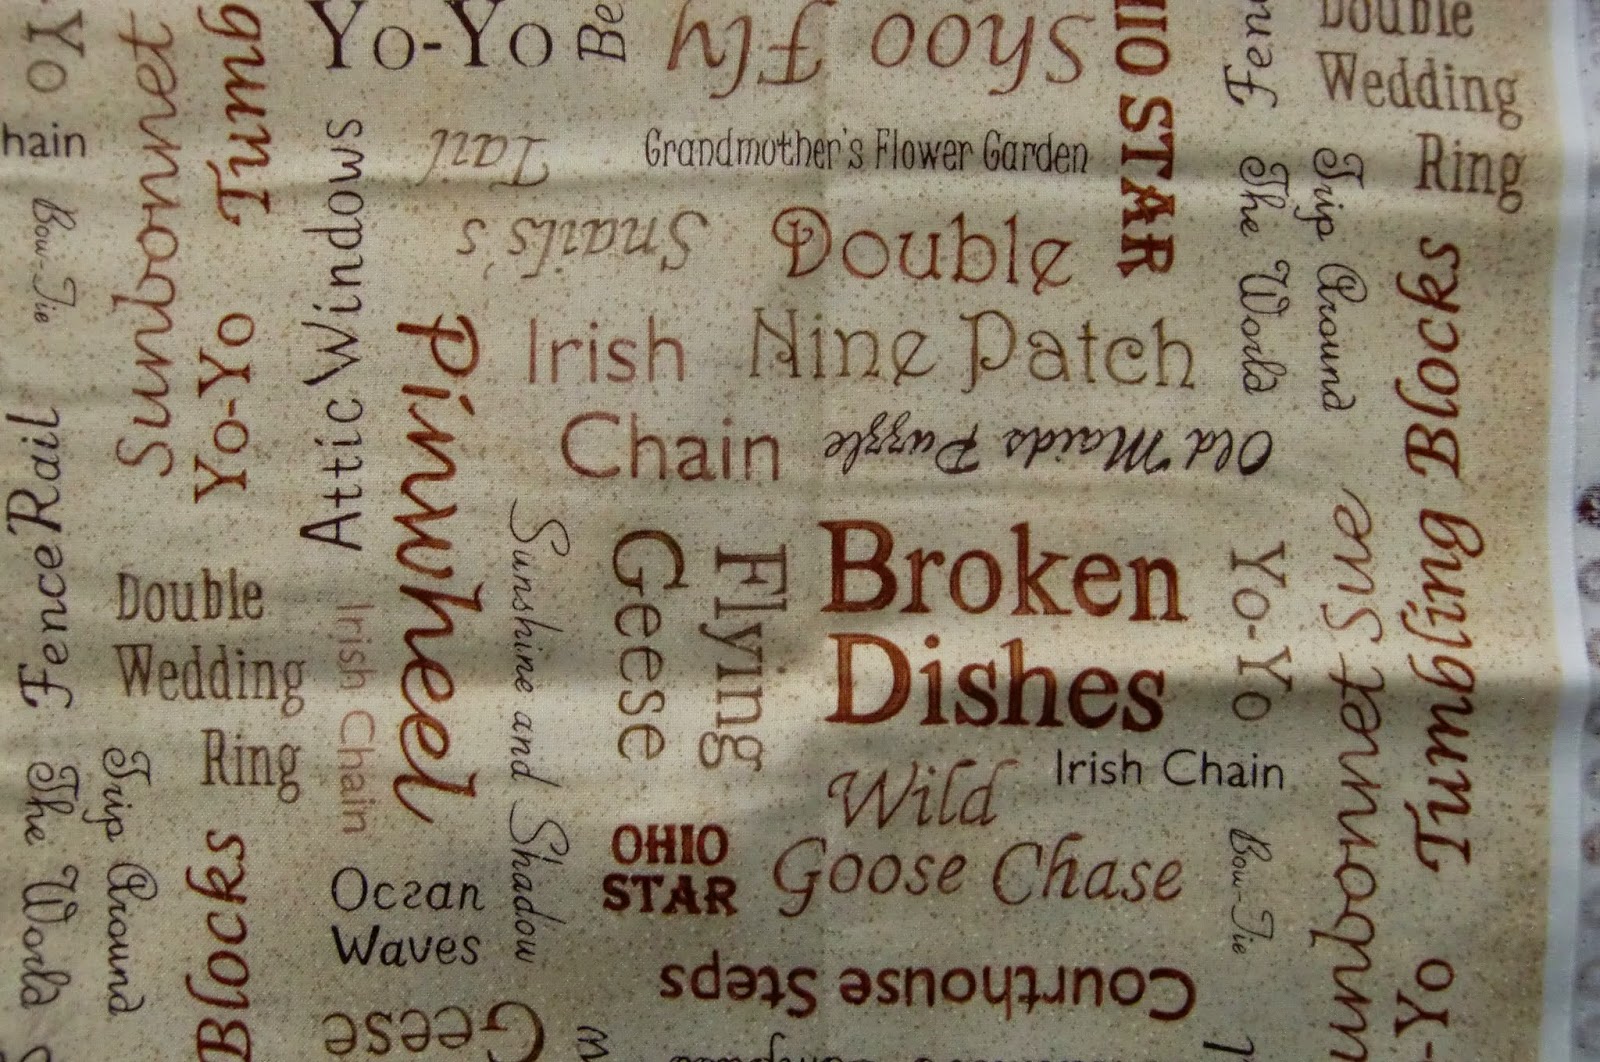 Yo
hain
Bow-Tie
Fence Rail
Trip Around
The World
Sunbonnet
Yo-Yo
Tumb
Double
Wedding
Ring
Blocks
Yo-Yo
Be
Shoo Fly
Attic Windows
Snail's
Tail
Grandmother's Flower Garden
Pinwheel
Irish
Chain
Double
Nine Patch
Old Maids Puzzle
HIO STAR
Irish Chain
Sunshine and Shadow
Flying
Geese
Broken
Dishes
Ocean
Waves
OHIO
STAR
Wild
Goose Chase
Irish Chain
Courthouse Steps
Geese
Double
Wedding
Ring
Fen
Trip Around
The World
Tumbling Blocks
Yo-Yo
Sunbonnet Sue
Bow-Tie
-Yo